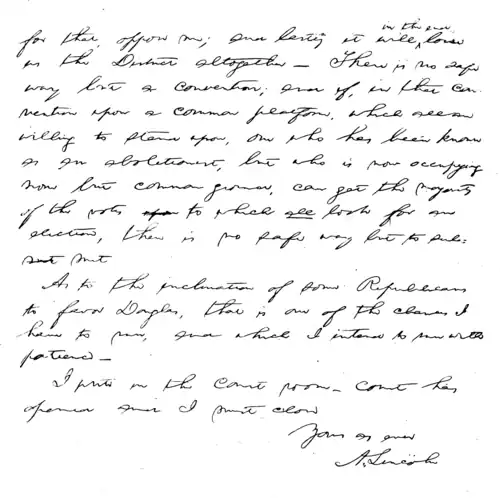 in the end,
for that, oppose me; and lastly it will lose
us the District altogether — There is no safe
way but a convention; and if, in that con-
vention upon a common platform, which all are
willing to stand upon, one who has been known
as an abolitionist, but who is now occupying
none but common ground, can get the majority
of the votes to which all look for an
election, there is no safe way but to sub-
mit
As to the inclination of some Republicans
to favor Douglas, that is one of the chances I
have to run, and which I intend to run with
patience —
I write in the Court room — Court has
opened and I must close
Yours as ever
A. Lincoln